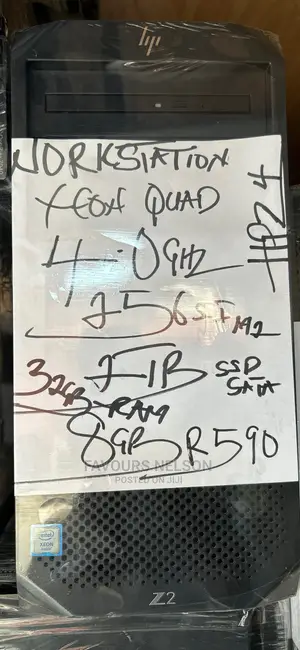 hp
WORKSTATION
XEON QUAD
4.0GHZ
Z4H
256 M2
1TB SSD SATA
32GB RAM
8GB R590
FAVOURS NELSON
POSTED ON JIJI
intel
XEON
Z2